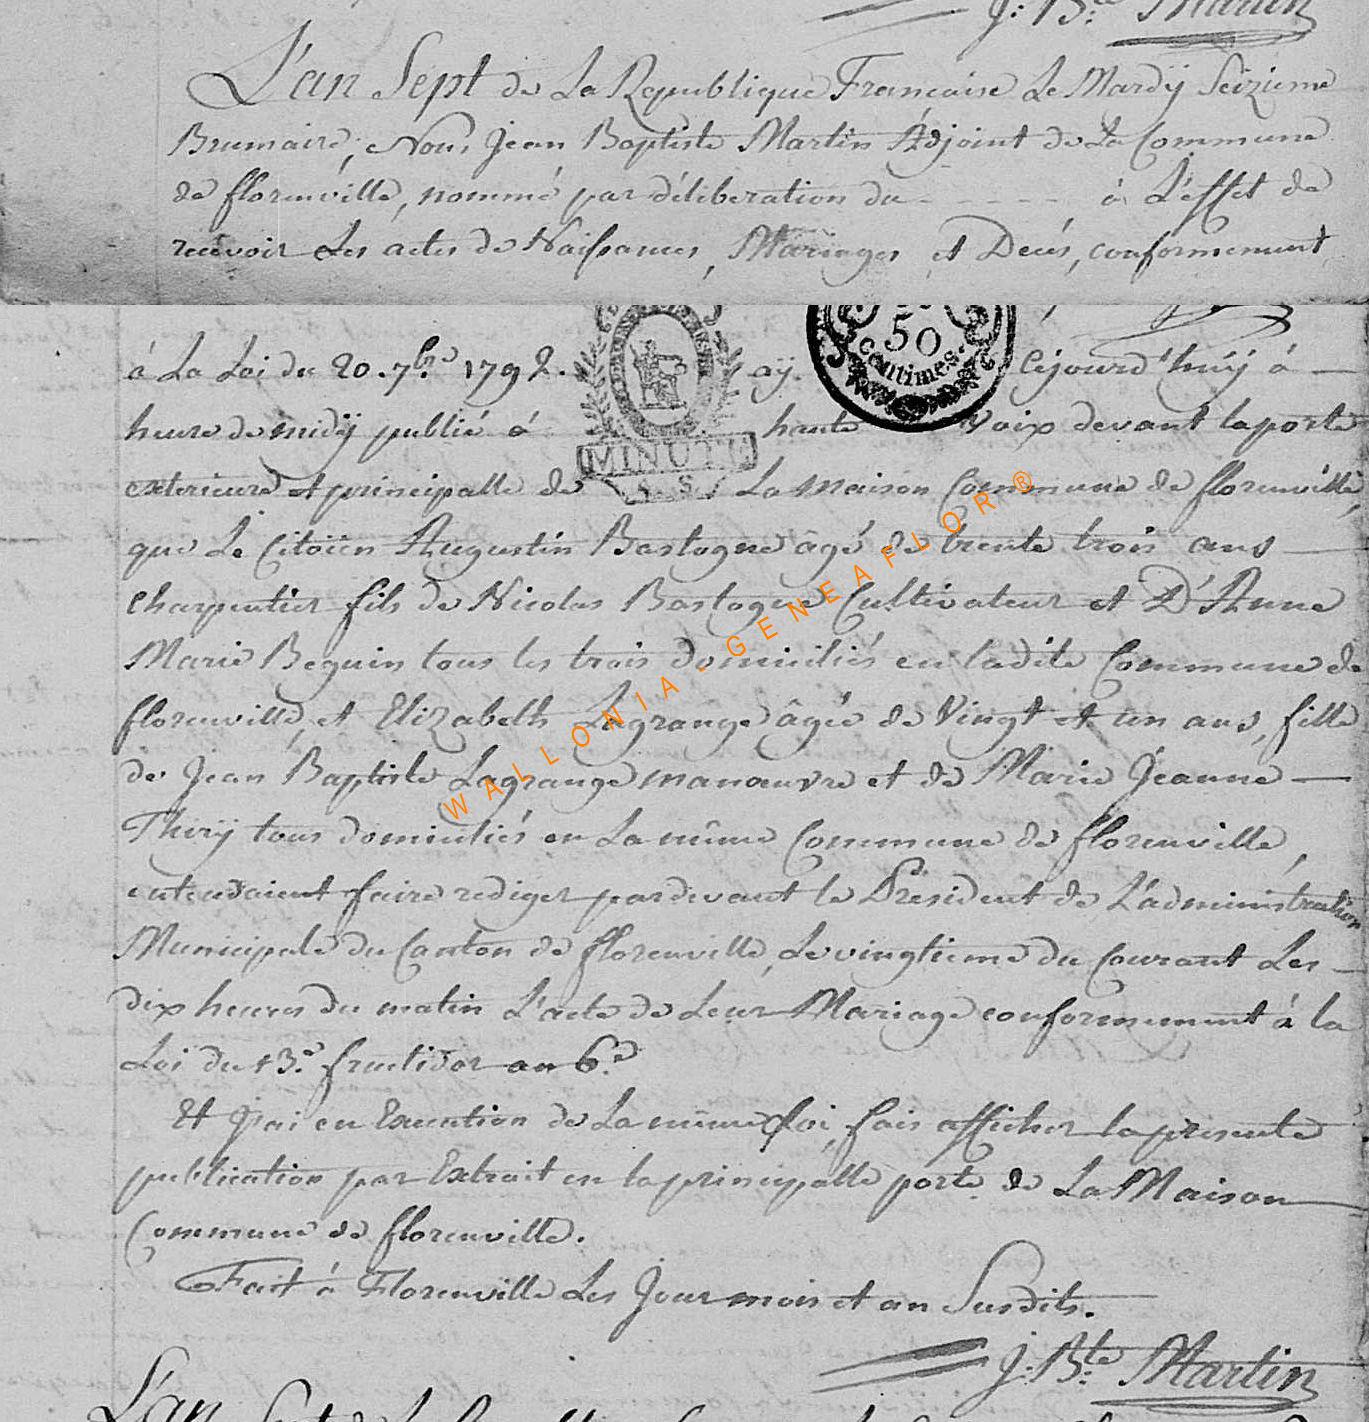 J: Bte Martin
L'an Sept de La Republique Francaise Le Mardÿ Seizieme
Brumaire, Nous Jean Baptiste Martin Adjoint de La Commune
de florenville, nommé par déliberation du - - - - - - à L'effet de
recevoir Les actes de Naissances, Mariages et Decés, conformement
à La Loi du 20. 7bre 1792. ay. Cejourd'huÿ à —
50
centimes.
heure de midÿ publié à haute Voix devant la porte
MINUTE
exterieure et principalle de La Maison Commune de florenville,
que Le Citoïen Augustin Bastogne âgé de trente trois ans —
charpentier fils de Nicolas Bastogne Cultivateur et D'Anne
Marie Beguin tous les trois domiciliés en ladite Commune de
florenville, et Elizabeth Lagrange âgée de Vingt et un ans, fille
de Jean Baptiste Lagrange manœuvre et de Marie Jeanne —
Thirÿ tous domiciliés en La même Commune de florenville,
entendaient faire rediger pardevant le Président de L'administration
Municipale du Canton de florenville, Le vingtieme du Courant Les —
dix heures du matin L'acte de Leur Mariage conformement à la
Loi du 13.e fructidor an 6.e
Et J'ai en Execution de La même Loi, fais afficher la presente
publication par Extrait en la principalle porte de La Maison
Commune de florenville.
Fait à Florenville Les Jour mois et an Susdits.
J: Bte Martin
L'an Sept de La
WALLONIA - GENEAFLOR ®